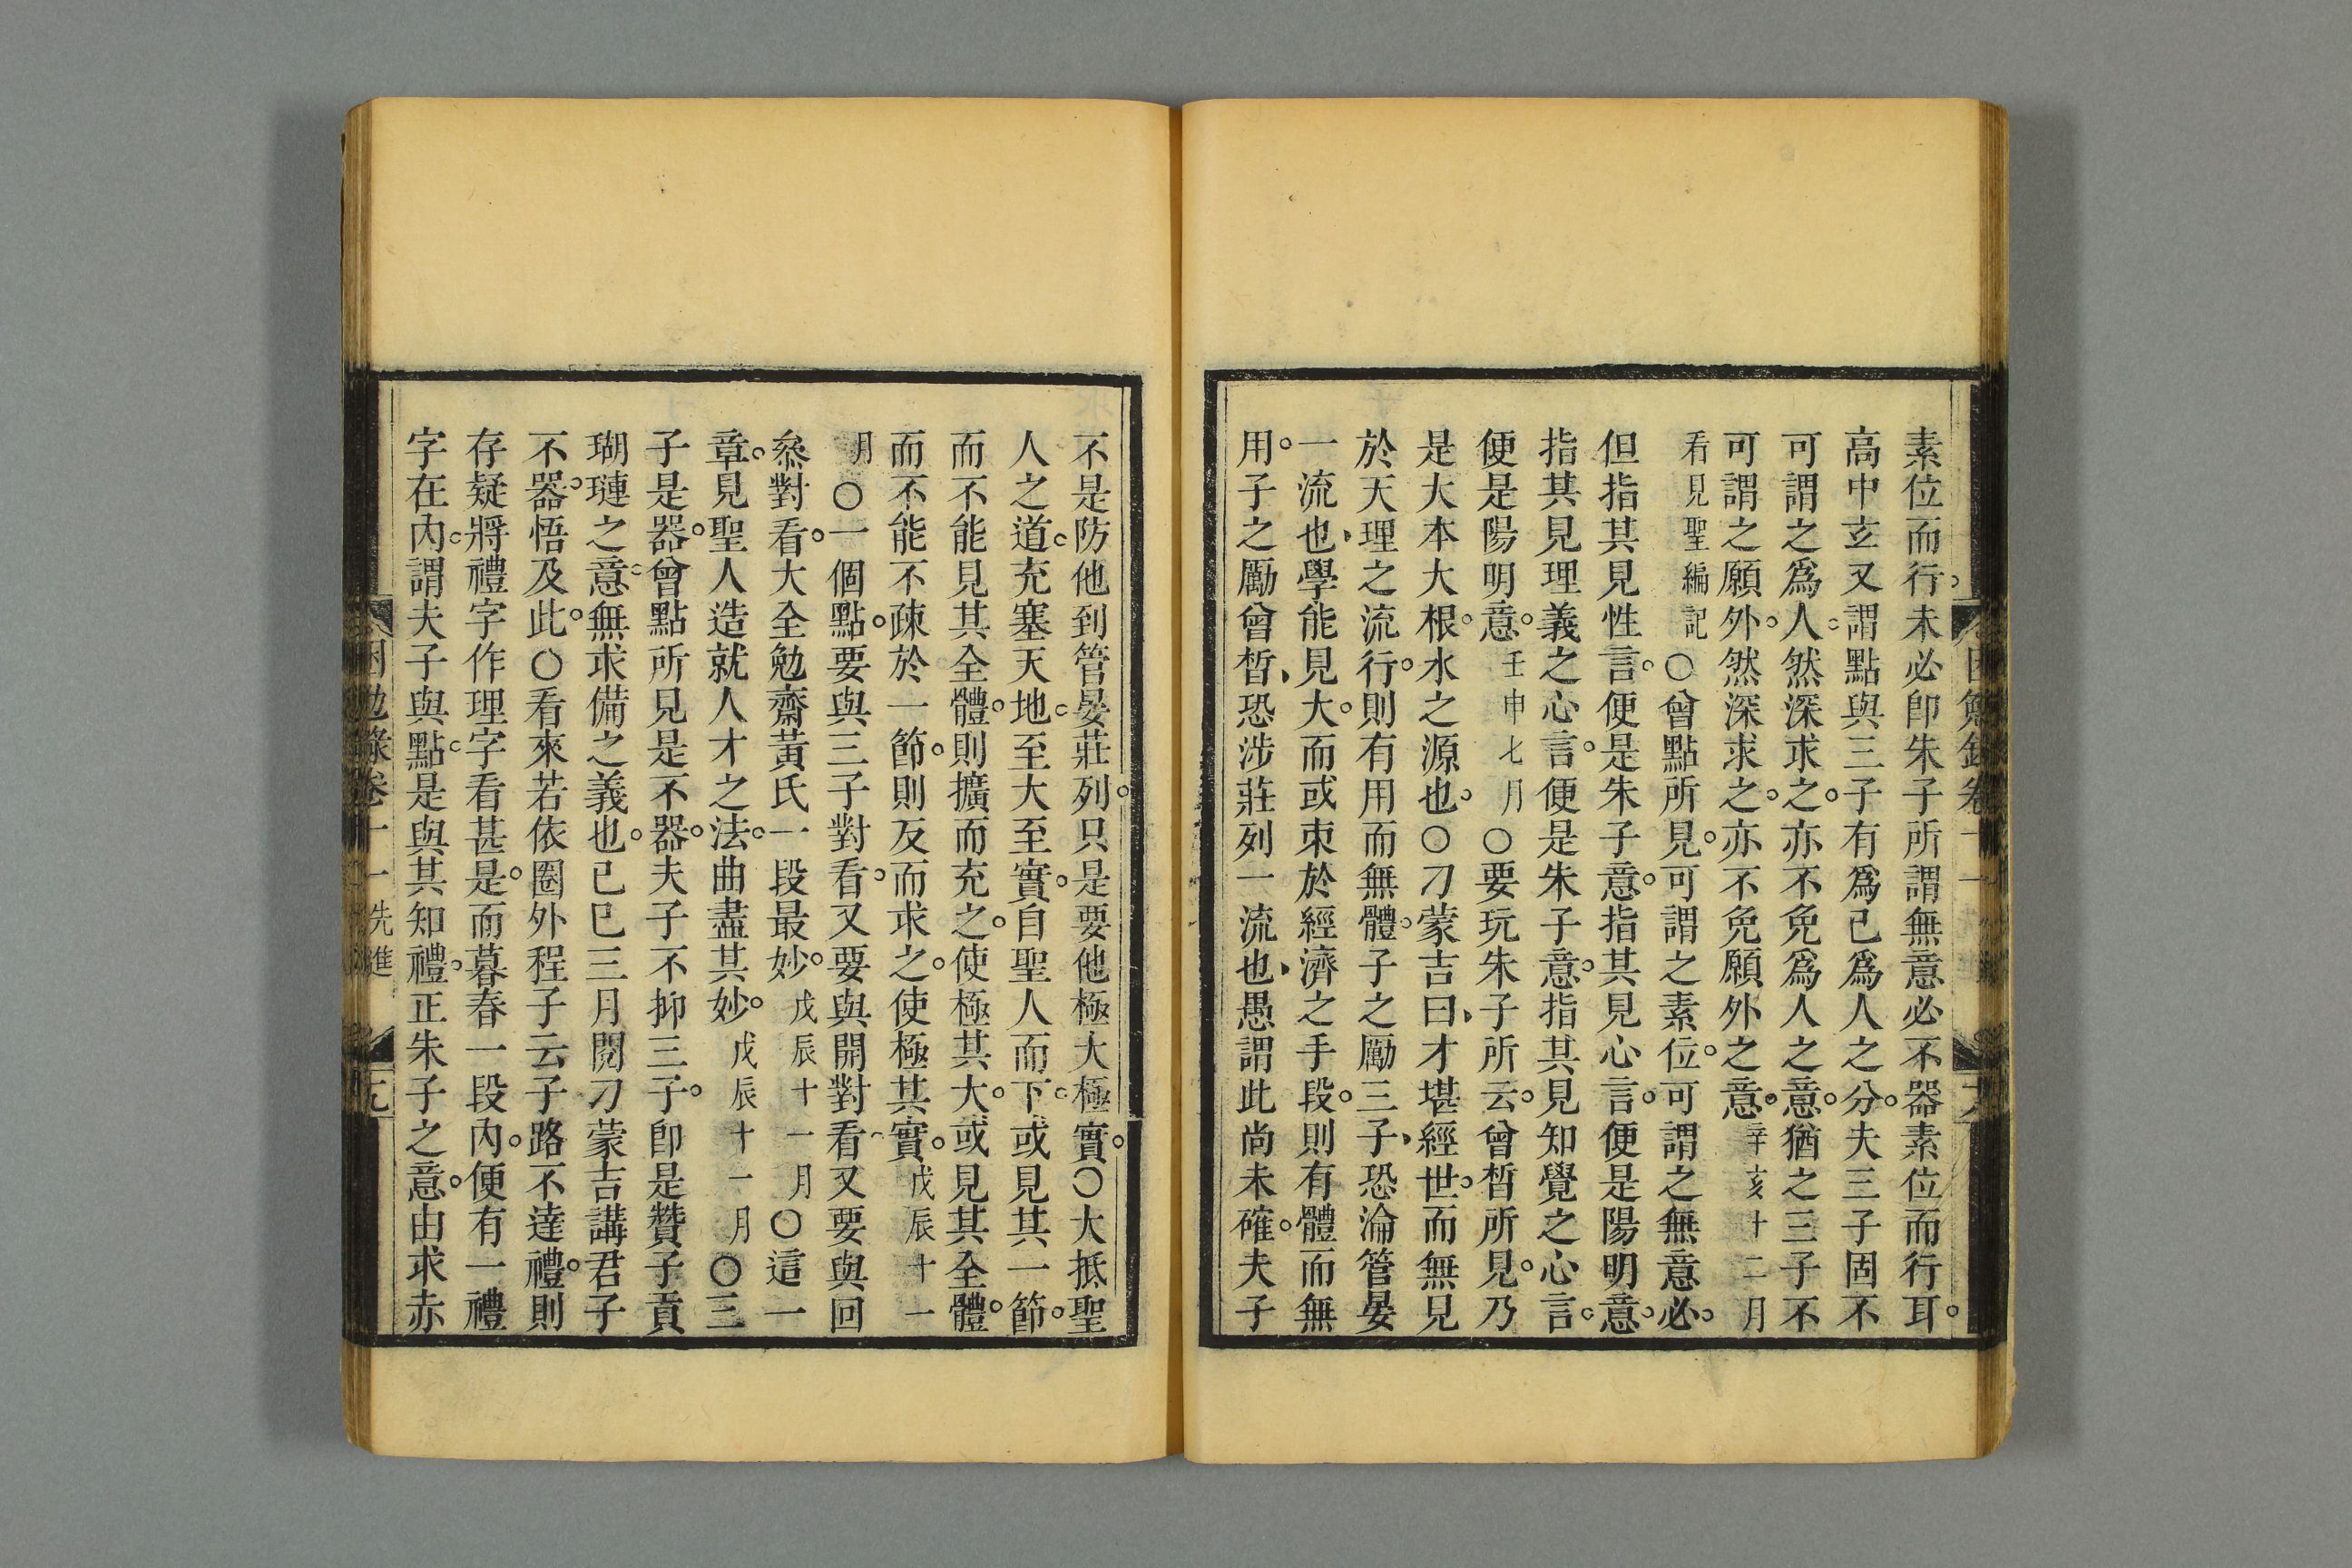 素位而行未必卽朱子所謂無意必不器素位而行耳
高中玄又謂點與三子有爲已爲人之分夫三子固不
可謂之爲人然深求之亦不免爲人之意猶之三子不
可謂之願外然深求之亦不免願外之意辛亥十二月
看見聖編記○曾點所見可謂之素位可謂之無意必
但指其見性言便是朱子意指其見心言便是陽明意
指其見理義之心言便是朱子意指其見知覺之心言
便是陽明意壬申七月○要玩朱子所云曾皙所見乃
是大本大根水之源也○刁蒙吉曰才堪經世而無見
於天理之流行則有用而無體子之勵三子恐淪管晏
一流也學能見大而或朿於經濟之手段則有體而無
用子之勵曾皙恐涉莊列一流也愚謂此尚未確夫子
不是防他到管晏莊列只是要他極大極實○大抵聖
人之道充塞天地至大至實自聖人而下或見其一節
而不能見其全體則擴而充之使極其大或見其全體
而不能不疎於一節則反而求之使極其實戊辰十一
月○一個點要與三子對看又要與開對看又要與回
叅對看大全勉齋黃氏一段最妙戊辰十一月○這一
章見聖人造就人才之法曲盡其妙戊辰十一月○三
子是器曾點所見是不器夫子不抑三子卽是贊子貢
瑚璉之意無求備之義也已巳三月閱刁蒙吉講君子
不器悟及此○看來若依圈外程子云子路不達禮則
存疑將禮字作理字看甚是而暮春一段內便有一禮
字在內謂夫子與點是與其知禮正朱子之意由求赤
困勉錄卷十一 先進